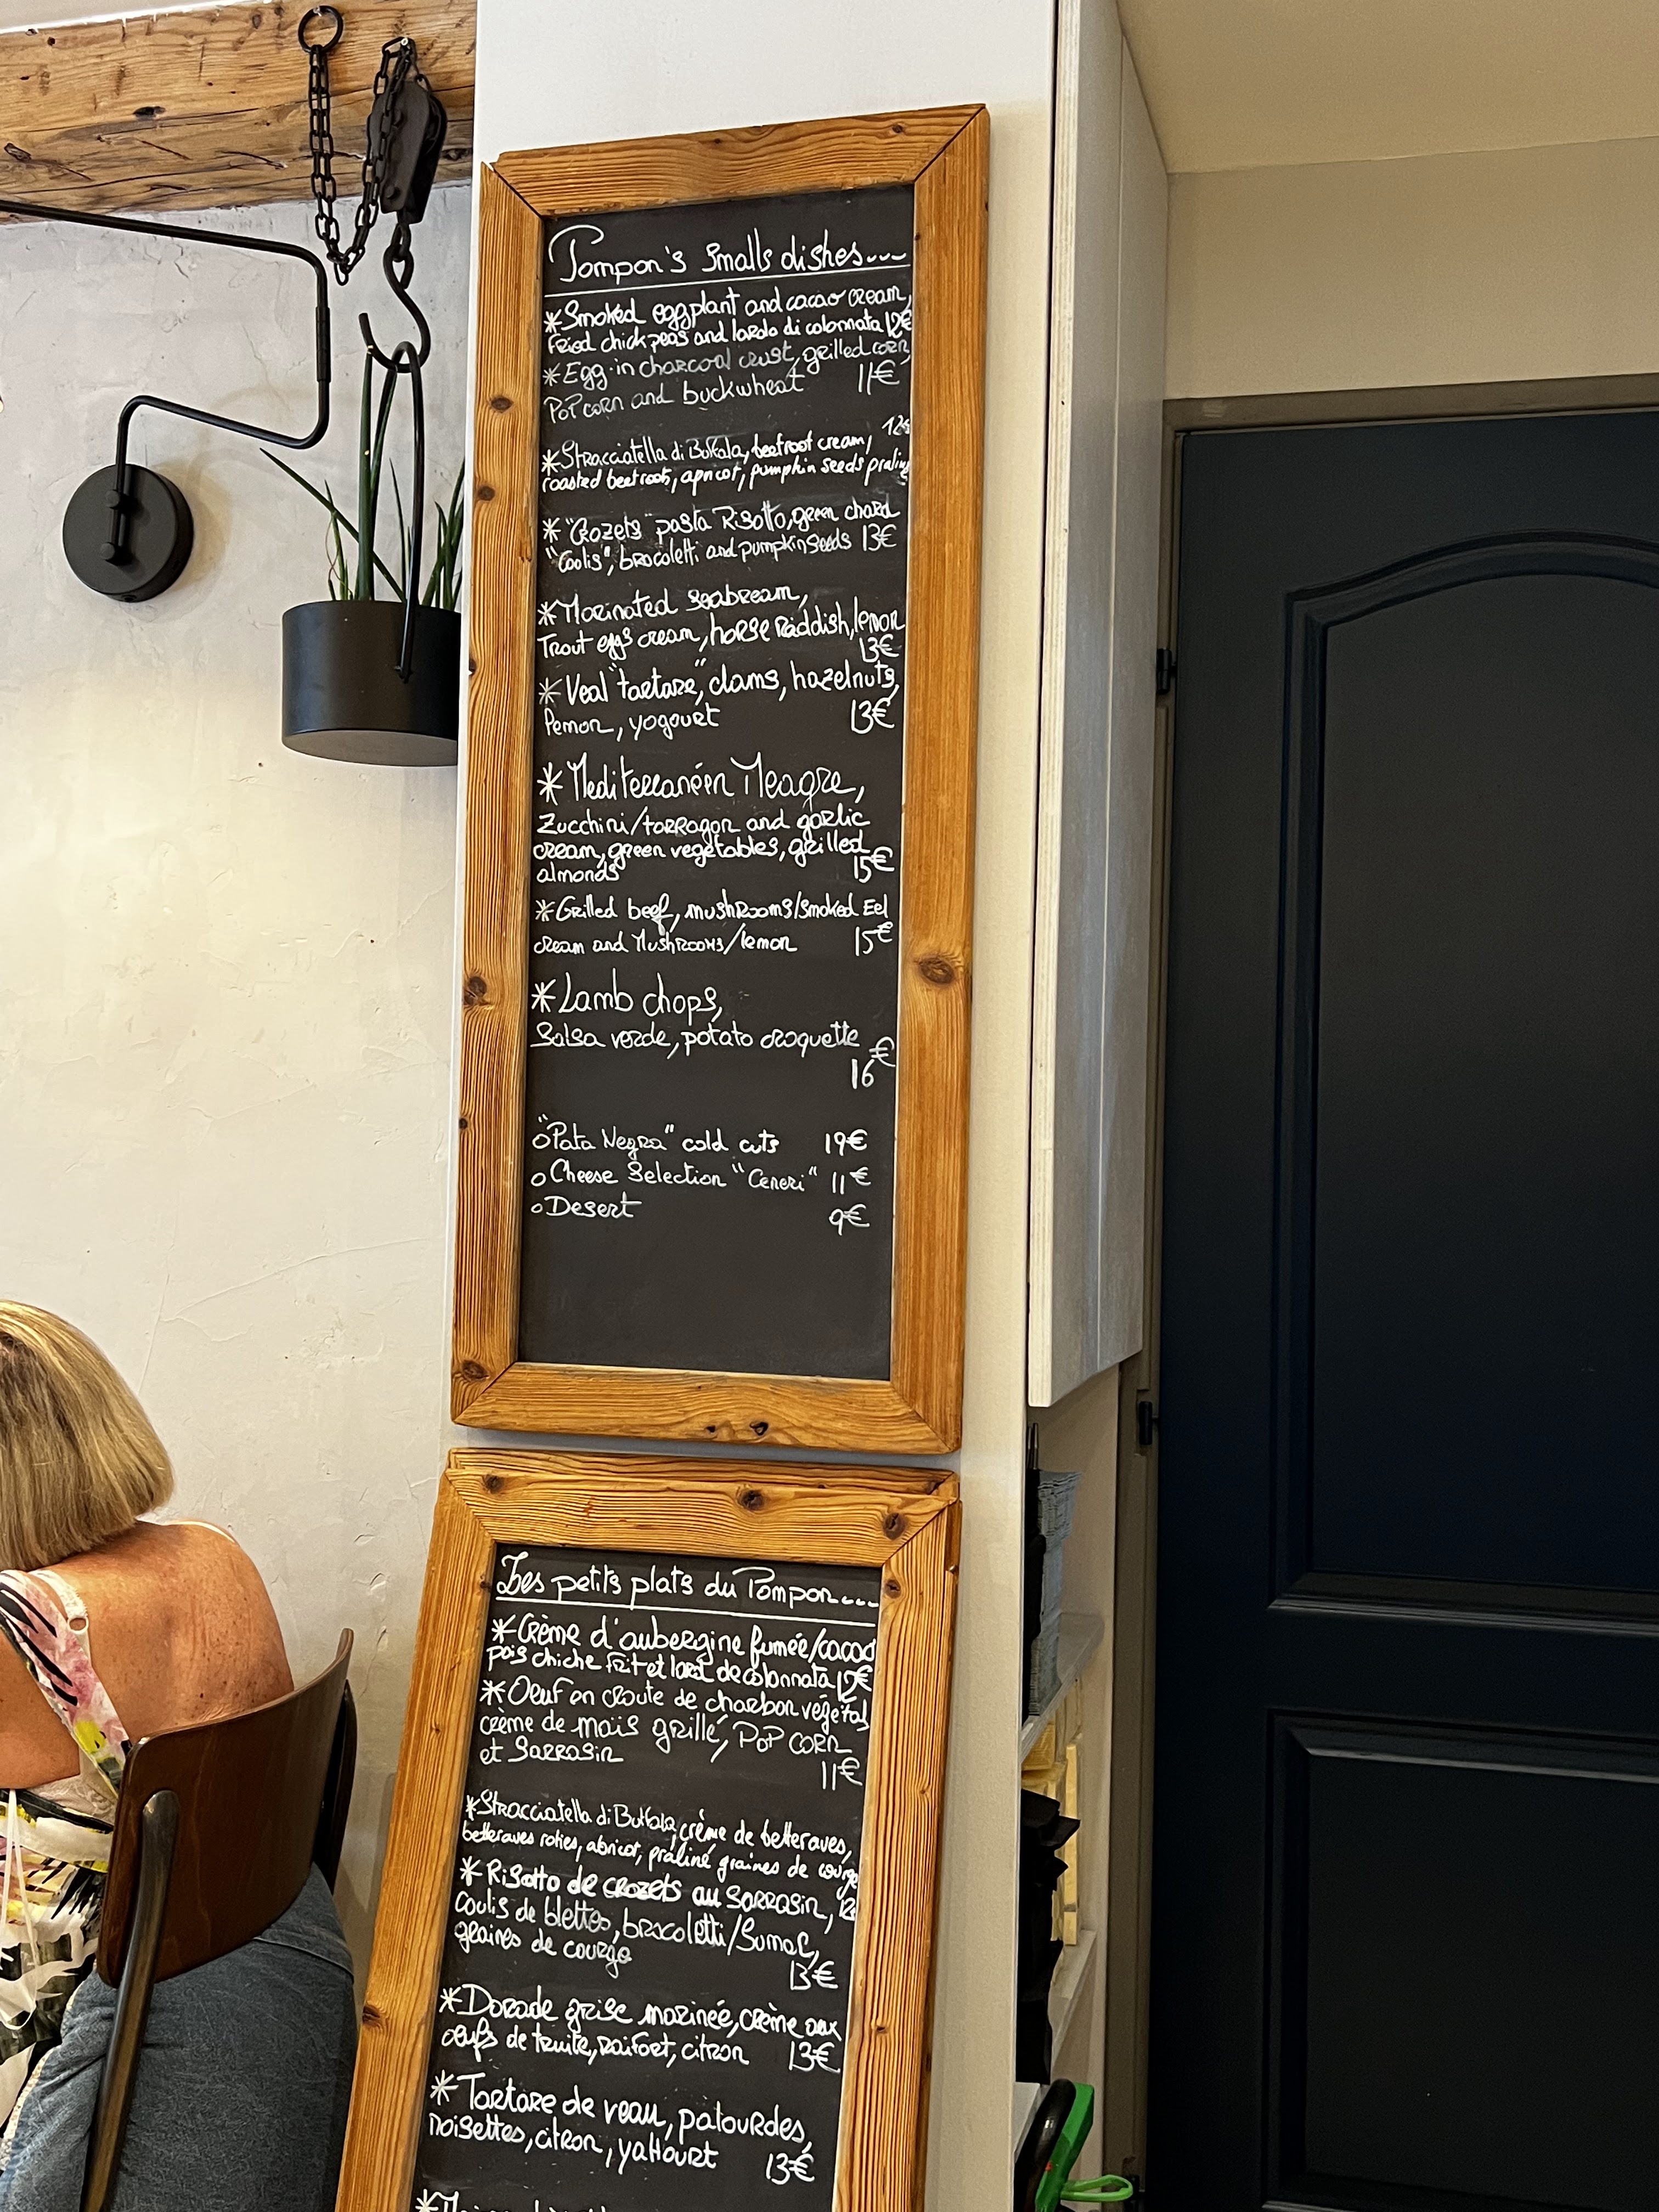 Pompon's Smalls dishes...
*Smoked eggplant and cacao cream,
Fried chick peas and lardo di colonnata 12€
*Egg in charcoal crust, grilled corn,
POP corn and buckwheat 11€
12€
*Stracciatella di Bufala, beetroot cream,
roasted beetroots, apricot, pumpkin seeds praliné
*"Crozets" pasta Risotto, green chard
"Coolis", brocoletti and pumpkin seeds 13€
*Marinated seabream,
Trout eggs cream, horse Raddish, lemon
13€
*Veal "tartare", clams, hazelnuts,
lemon, yogourt 13€
*Mediterranéen Meagre,
Zucchini/tarragon and garlic
cream, green vegetables, grilled
almonds 15€
*Grilled beef, mushrooms/smoked Eel
cream and Mushrooms/lemon 15€
*Lamb chops,
Salsa verde, potato croquette €
16
o"Pata Negra" cold cuts 19€
oCheese Selection "Ceneri" 11€
oDesert 9€
Les petits plats du Pompon...
*Crème d'aubergine fumée/cacao
pois chiche frit et lard de colonnata 12€
*Oeuf en croute de charbon végétal
crème de maïs grillé, POP CORN
et Sarrasin
11€
*Stracciatella di Bufala, crème de betteraves,
betteraves roties, abricot, praliné graines de courge
*Risotto de crozets au Sarrasin, 12€
coulis de blettes, brocoletti/Sumac,
graines de courge
13€
*Dorade grise marinée, crème aux
œufs de truite, raifort, citron 13€
*Tartare de veau, palourdes,
noisettes, citron, yahourt 13€